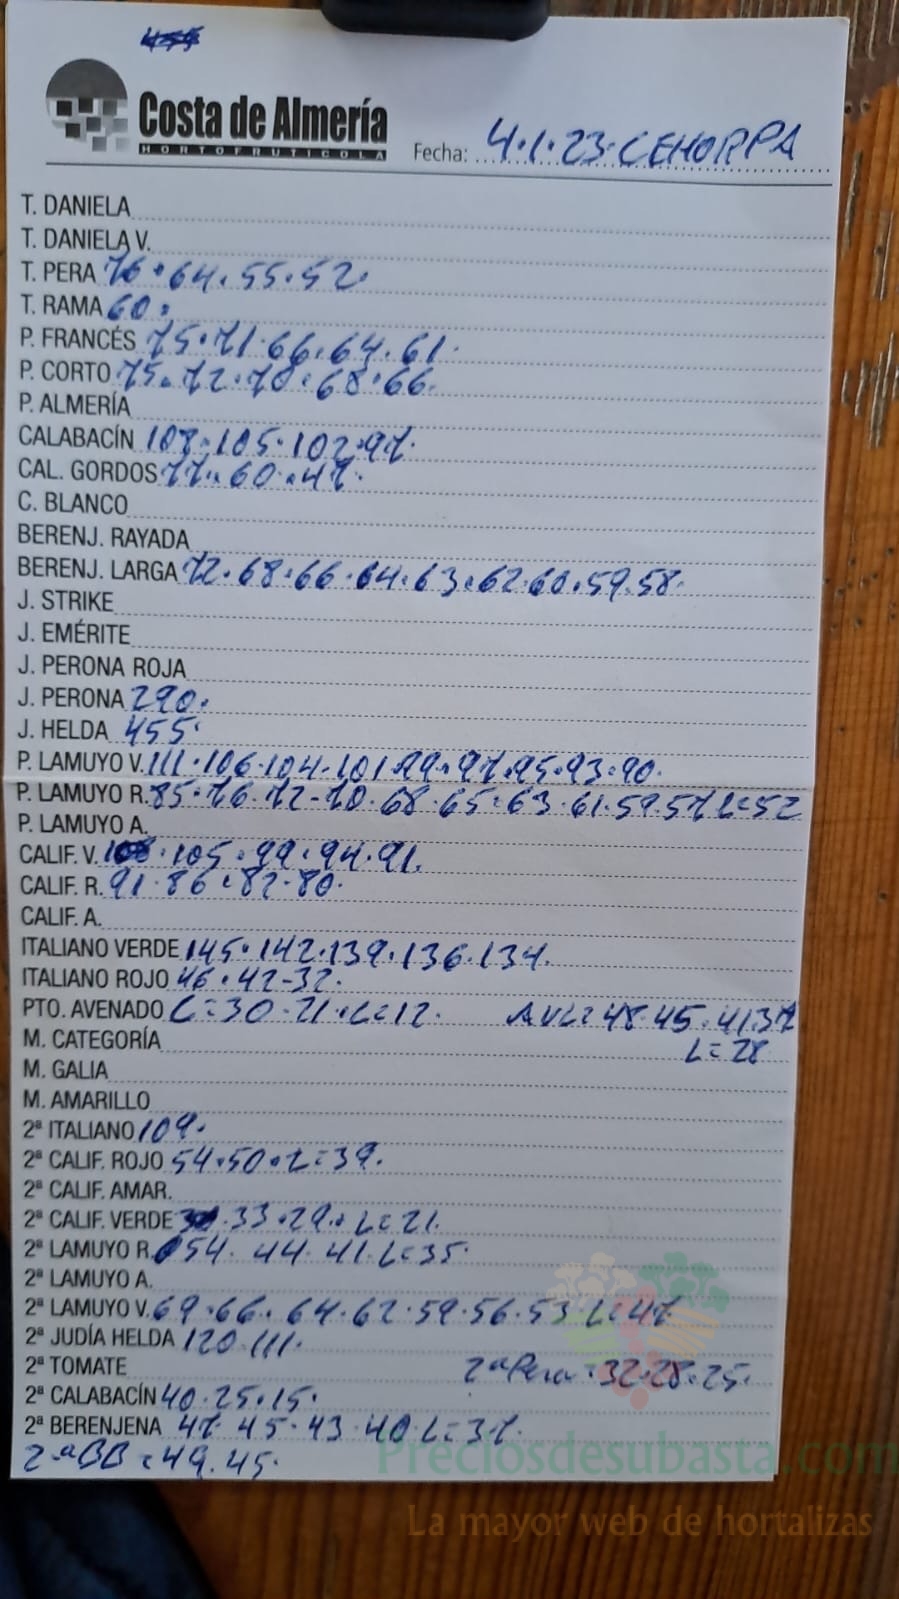 Costa de Almería
HORTOFRUTICOLA
Fecha: 4.1.23. CEHORPA
T. DANIELA
T. DANIELA V.
T. PERA 76.64.55.52.
T. RAMA 60.
P. FRANCÉS 75.71.66.64.61.
P. CORTO 75.72.70.68.66.
P. ALMERÍA
CALABACÍN 108.105.102.97.
CAL. GORDOS 77.60.47.
C. BLANCO
BERENJ. RAYADA
BERENJ. LARGA 72.68.66.64.63.62.60.59.58.
J. STRIKE
J. EMÉRITE
J. PERONA ROJA
J. PERONA 290.
J. HELDA 455.
P. LAMUYO V. 111.106.104-101.99.97.95.93.90.
P. LAMUYO R. 85.76.72-70.68.65.63.61.59.57 L=52
P. LAMUYO A.
CALIF. V. .105.99.94.91.
CALIF. R. 91.86.82.80.
CALIF. A.
ITALIANO VERDE 145.142.139.136.134.
ITALIANO ROJO 46.42-32.
PTO. AVENADO L=30-21.L=12. AVL=48.45.41.37
M. CATEGORÍA L=28
M. GALIA
M. AMARILLO
2ª ITALIANO 109.
2ª CALIF. ROJO 54.50.L=39.
2ª CALIF. AMAR.
2ª CALIF. VERDE .33.29.L=21.
2ª LAMUYO R. 54.44.41.L=35.
2ª LAMUYO A.
2ª LAMUYO V. 69.66.64.62.59.56.53 L=47
2ª JUDÍA HELDA 120.111.
2ª TOMATE 2ª Pera.32.28.25.
2ª CALABACÍN 40.25.15.
2ª BERENJENA 47.45.43.40.L=37.
2ª BB=49.45.
Preciosdesubasta.com
La mayor web de hortalizas